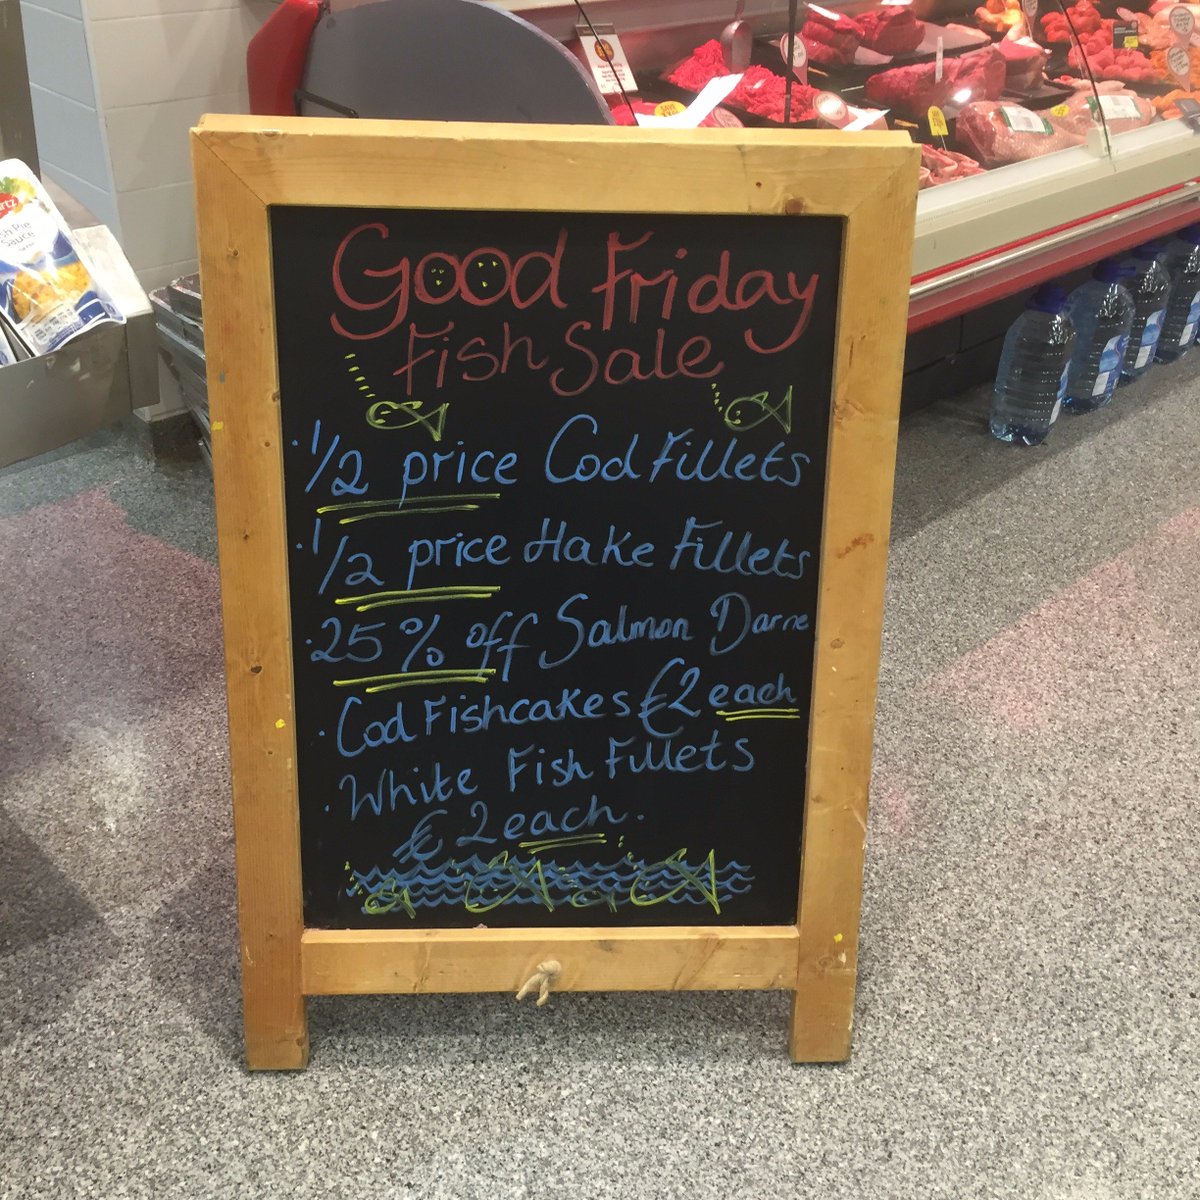 Good Friday
Fish Sale
· 1/2 price Cod Fillets
· 1/2 price Hake Fillets
· 25% off Salmon Darne
· Cod Fishcakes €2 each
· White Fish Fillets
€2 each.
Pie
Sauce